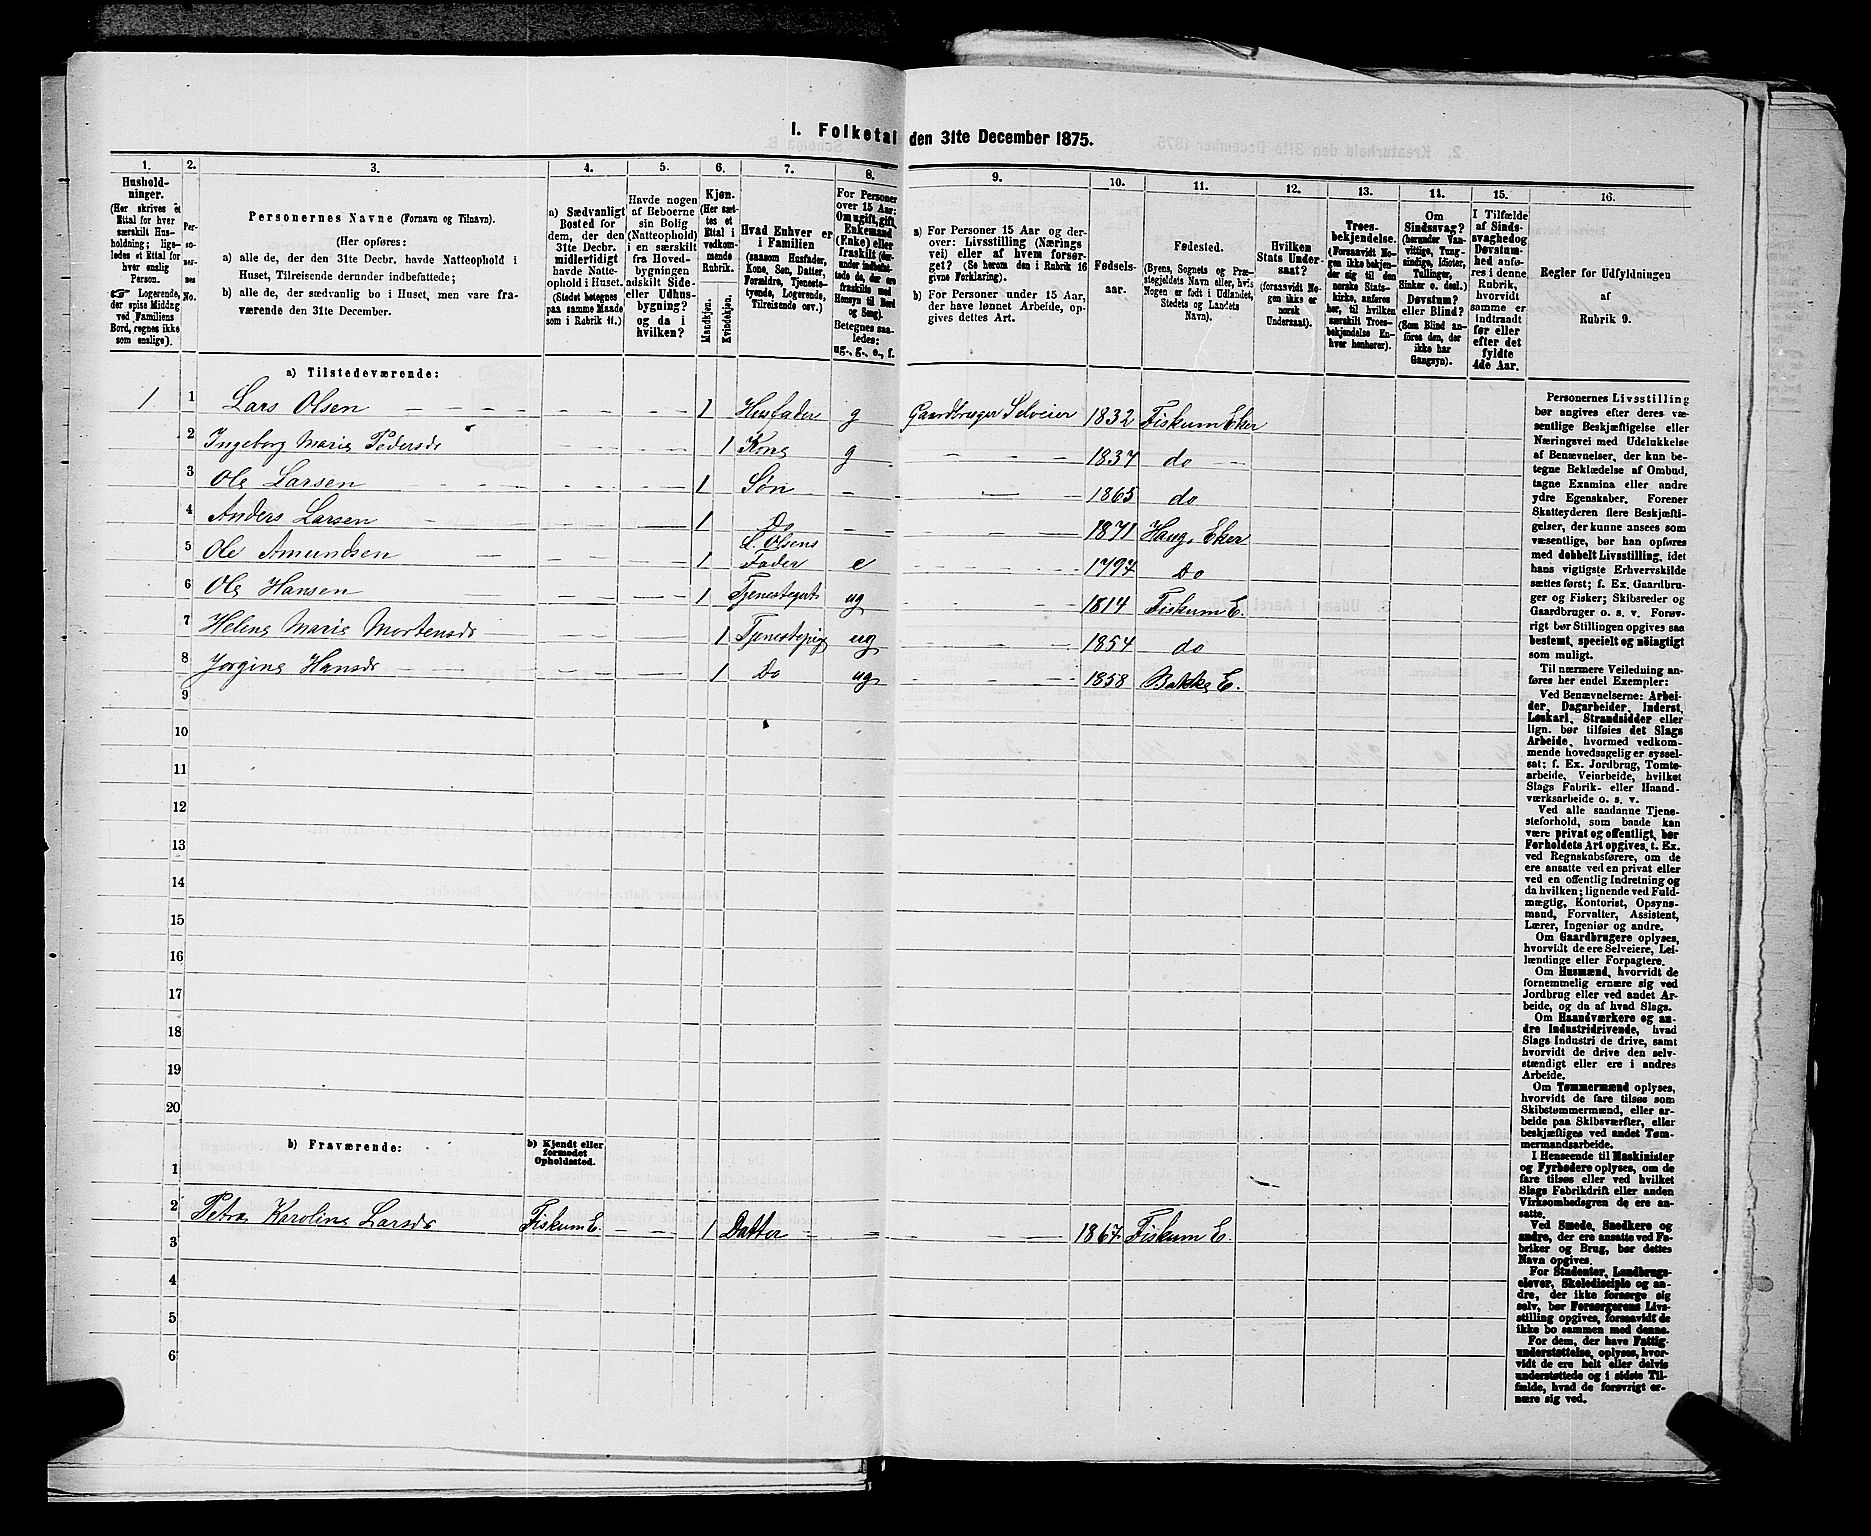 1. Folketal den 31te December 1875.
1. 2. 3. 4. 5. 6. 7. 8. 9. 10. 11. 12. 13. 14. 15. 16.
Hushold-
ninger.
(Her skrives et
Ettal for hver
særskilt Hus-
holdning; lige-
ledes et Ettal for
hver enslig
Person.
☞ Logerende,
der spise Middag
ved Familiens
Bord, regnes ikke
som enslige).
Per-
so-
ner-
nes
No.
Personernes Navne (Fornavn og Tilnavn).
(Her opføres:
a) alle de, der den 31te Decbr. havde Natteophold i
Huset, Tilreisende derunder indbefattede;
b) alle de, der sædvanlig bo i Huset, men vare fra-
værende den 31te December.
a) Sædvanligt
Bosted for
dem, der den
31te Decbr.
midlertidigt
havde Natte-
ophold i Huset.
(Stedet betegnes
paa samme Maade
som i Rubrik 11.)
Havde nogen
af Beboerne
sin Bolig
(Natteophold)
i en særskilt
fra Hoved-
bygningen
adskilt Side-
eller Udhus-
bygning?
og da i
hvilken?
Kjøn.
(Her sæt-
tes et
Ettal i
vedkom-
mende
Rubrik.
Mandkjøn.
Kvindekjøn.
Hvad Enhver er
i Familien
(saasom Husfader,
Kone, Søn, Datter,
Forældre, Tjeneste-
tyende, Logerende,
Tilreisende osv.)
For Personer
over 15 Aar:
Om ugift, gift,
Enkemand
(Enke) eller
fraskilt (der-
under indbefat-
tede de, der ere
fraskilte med
Hensyn til Bord
og Seng).
Betegnes saa-
ledes:
ug., g., e., f.
a) For Personer 15 Aar og der-
over: Livsstilling (Nærings-
vei) eller af hvem forsør-
get? (Se herom den i Rubrik 16
givne Forklaring).
b) For Personer under 15 Aar,
der have lønnet Arbeide, op-
gives dettes Art.
Fødsels-
aar.
Fødested.
(Byens, Sognets og Præ-
stegjeldets Navn eller, hvis
Nogen er født i Udlandet,
Stedets og Landets
Navn).
Hvilken
Stats Under-
saat?
(forsaavidt No-
gen ikke er
norsk
Undersaat).
Troes-
bekjendelse.
(Forsaavidt No-
gen ikke bekjen-
der sig til den
norske Stats-
kirke, anføres
her, til hvilken
særskilt Troes-
bekjendelse En-
hver henhører).
Om
Sindssvag?
(herunder Van-
vittige, Tung-
sindige, Idioter,
Tullinger,
Sinker o. desl.)
Døvstum?
eller Blind?
(Som Blind an-
føres den, der
ikke har
Gangsyn).
I Tilfælde
af Sinds-
svaghed og
Døvstum-
hed anfø-
res i denne
Rubrik,
hvorvidt
samme er
indtraadt
før eller
efter det
fyldte
4de Aar.
Regler før Udfyldningen
af
Rubrik 9.
a) Tilstedeværende:
1 1 Lars Olsen 1 Husfader g Gaardbruger Selveier 1832 Fiskum Eker
2 Ingeborg Marie Pedersdr 1 Kone g 1837 do
3 Ole Larsen 1 Søn 1865 do
4 Anders Larsen 1 Do 1871 Haug, Eker
5 Ole Amundsen 1 L. Olsens Fader e 1797 Do
6 Ole Hansen 1 Tjenestegut ug 1814 Fiskum E.
7 Helene Marie Mortensdr 1 Tjenestepige ug 1854 do
8 Jorgine Hansdr 1 Do ug 1858 Bakke E.
9
10
11
12
13
14
15
16
17
18
19
20
b) Fraværende:
b) Kjendt eller
formodet
Opholdssted.
1
2 Petra Karoline Larsdr Fiskum E. 1 Datter 1867 Fiskum E.
3
4
5
6
Personernes Livsstilling
bør angives efter deres væ-
sentlige Beskjæftigelse eller
Næringsvei med Udelukkelse
af Benævnelser, der kun be-
tegne Beklædelse af Ombud,
tagne Examina eller andre
ydre Egenskaber. Forener
Skatteyderen flere Beskjæfti-
gelser, der kunne ansees som
væsentlige, bør han opføres
med dobbelt Livsstilling, idet
hans vigtigste Erhvervskilde
sættes først; f. Ex. Gaardbru-
ger og Fisker; Skibsreder og
Gaardbruger o. s. v. Forøv-
rigt bør Stillingen opgives saa
bestemt, specielt og nøiagtigt
som muligt.
Til nærmere Veiledning an-
føres her endel Exempler:
Ved Benævnelserne: Arbei-
der, Dagarbeider, Inderst,
Løskarl, Strandsidder eller
lign. bør tilføies det Slags
Arbeide, hvormed vedkom-
mende hovedsagelig er syssel-
sat; f. Ex. Jordbrug, Tomte-
arbeide, Veiarbeide, hvilket
Slags Fabrik- eller Haand-
værksarbeide o. s. v.
Ved alle saadanne Tjene-
steforhold, som baade kan
være privat og offentligt, bør
Forholdets Art opgives, t. Ex.
ved Regnskabsførere, om de
ere ansatte ved en privat eller
ved en offentlig Indretning og
da hvilken; lignende ved Fuld-
mægtig, Kontorist, Opsyns-
mand, Forvalter, Assistent,
Lærer, Ingeniør og andre.
Om Gaardbrugere oplyses,
hvorvidt de ere Selveiere, Lei-
lændinge eller Forpagtere.
Om Husmænd, hvorvidt de
fornemmelig ernære sig ved
Jordbrug eller ved andet Ar-
beide, og da af hvad Slags.
Om Haandværkere og an-
dre Industridrivende, hvad
Slags Industri de drive, samt
hvorvidt de drive den selv-
stændigt eller ere i andres
Arbeide.
Om Tømmermænd oplyses,
hvorvidt de fare tilsøs som
Skibstømmermænd, eller ar-
beide paa Skibsværfter, eller
beskjæftiges ved andet Tøm-
mermandsarbeide.
I Henseende til Maskinister
og Fyrbødere oplyses, om de
fare tilsøs eller ved hvilket
Slags Fabrikdrift eller anden
Virksomhedsgren de ere an-
satte.
Ved Smede, Snedkere og
andre, der ere ansatte ved Fa-
briker og Brug, bør dettes
Navn opgives.
For Studenter, Landbrugs-
elever, Skoledisciple og an-
dre, der ikke forsørge sig
selv, bør Forsørgerens Livs-
stilling opgives, forsaavidt de
ikke bo sammen med denne.
For dem, der have Fattig-
understøttelse, oplyses, hvor-
vidt de ere helt eller delvis
understøttede og i sidste Til-
fælde, hvad de forøvrigt er-
nære sig ved.